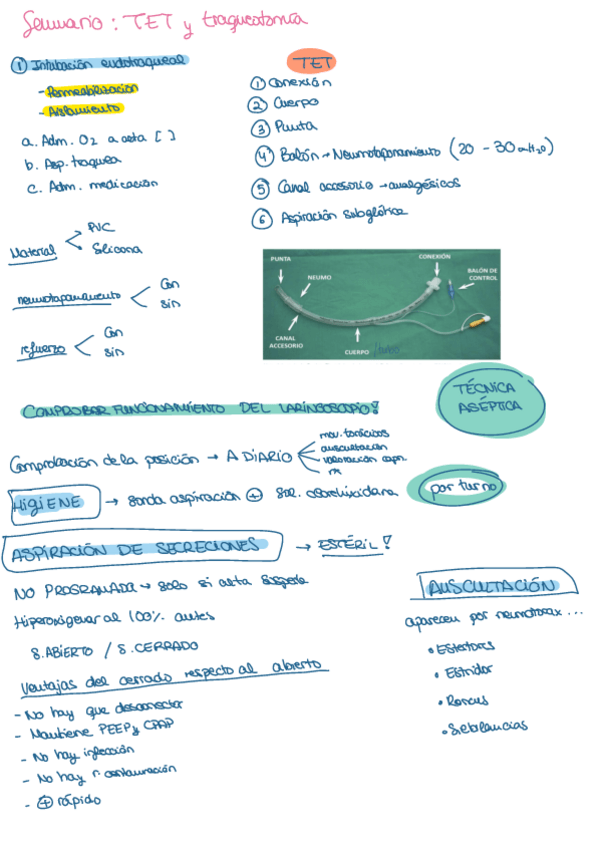 Seminario: TET y traqueotomía
① Intubación endotraqueal
- Permeabilización
- Aislamiento
a. Adm. O2 a alta [ ]
b. Asp. traquea
c. Adm. medicación
Material
PVC
Silicona
neumotaponamiento
Con
sin
refuerzo
Con
sin
TET
① Conexión
② Cuerpo
③ Punta
④ Balón → Neumotaponamiento (20 - 30 cmH2O)
⑤ Canal accesorio → analgésicos
⑥ Aspiración subglótica
PUNTA
NEUMO
CONEXIÓN
BALÓN DE CONTROL
CANAL ACCESORIO
CUERPO
COMPROBAR FUNCIONAMIENTO DEL LARINGOSCOPIO!
TÉCNICA ASÉPTICA
Comprobación de la posición → A DIARIO
mov. torácicos
auscultación
valoración capn.
rx
HIGIENE → sonda aspiración ⊕ sol. clorhexidina
por turno
ASPIRACIÓN DE SECRECIONES → ESTÉRIL!
NO PROGRAMADA → solo si esta
Hiperoxigenar al 100% antes
S. ABIERTO / S. CERRADO
Ventajas del cerrado respecto al abierto
- No hay que desconectar
- Mantiene PEEP y CPAP
- No hay infección
- No hay r. contaminación
- ⊕ rápido
AUSCULTACIÓN
aparecen por neumotorax ...
• Estertores
• Estridor
• Roncus
• Sibilancias